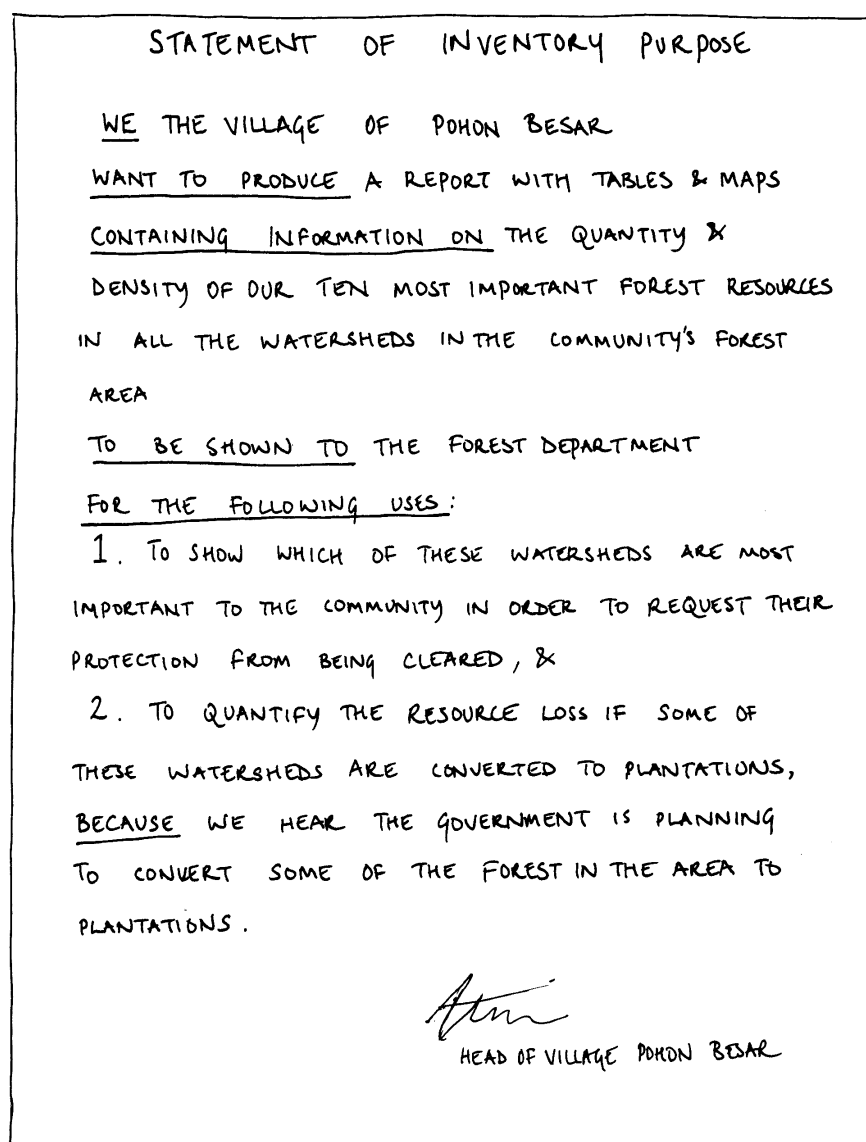 STATEMENT OF INVENTORY PURPOSE
WE THE VILLAGE OF POHON BESAR
WANT TO PRODUCE A REPORT WITH TABLES & MAPS
CONTAINING INFORMATION ON THE QUANTITY &
DENSITY OF OUR TEN MOST IMPORTANT FOREST RESOURCES
IN ALL THE WATERSHEDS IN THE COMMUNITY'S FOREST
AREA
TO BE SHOWN TO THE FOREST DEPARTMENT
FOR THE FOLLOWING USES:
1. TO SHOW WHICH OF THESE WATERSHEDS ARE MOST
IMPORTANT TO THE COMMUNITY IN ORDER TO REQUEST THEIR
PROTECTION FROM BEING CLEARED, &
2. TO QUANTIFY THE RESOURCE LOSS IF SOME OF
THESE WATERSHEDS ARE CONVERTED TO PLANTATIONS,
BECAUSE WE HEAR THE GOVERNMENT IS PLANNING
TO CONVERT SOME OF THE FOREST IN THE AREA TO
PLANTATIONS.
HEAD OF VILLAGE POHON BESAR